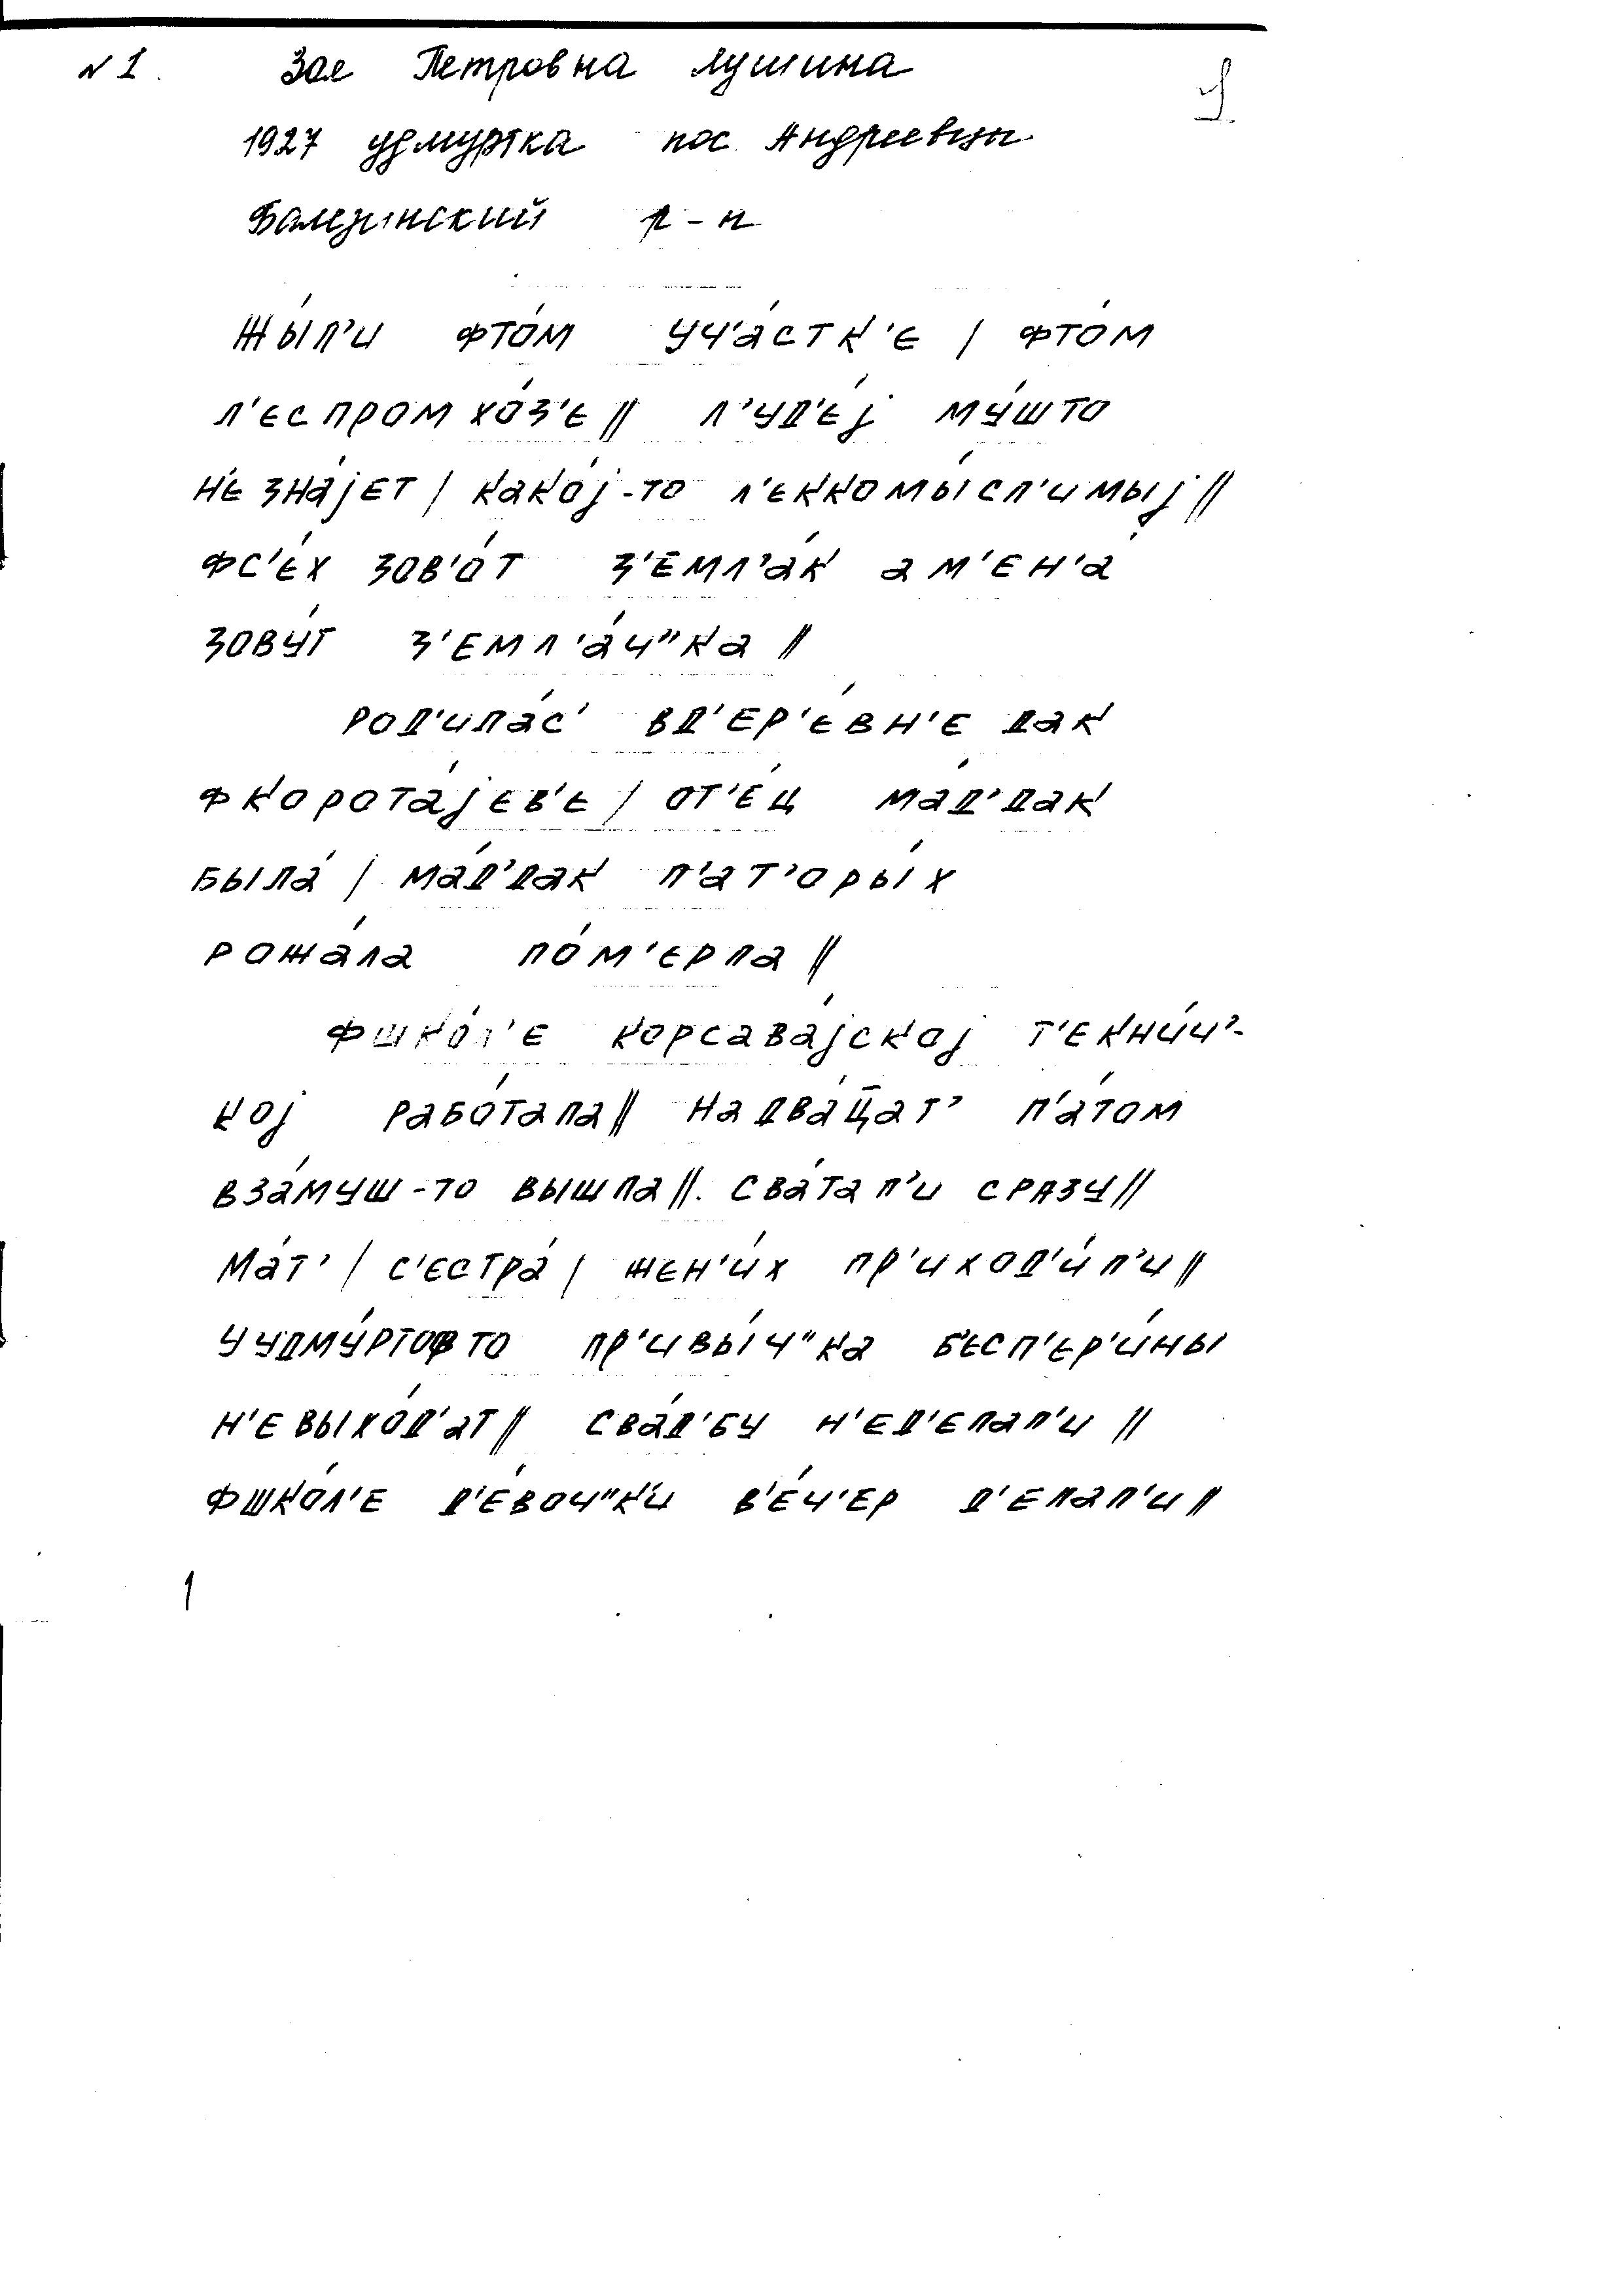 N 1. Зоя Петровна Лушина
1927 удмуртка пос. Андреевцы
Балезинский р-н
жы́л'и фто́м уч'а́стк'є / фто́м
л'єспромхо́з'є // л'уд'є́ј му́што
н'є зна́јєт / како́ј-то л'єккомы́сл'имыј //
фс'є́х зов'о́т з'ємл'а́к а м'єн'а́
зову́т з'ємл'а́ч"ка //
род'ила́с' вд'єр'є́вн'є дак
фкорота́јєв'є / от'є́ц мад'дак
была́ / ма́д'дак п'ат'оры́х
рожа́ла по́м'єрла //
фшко́л'є корсава́јской т'єкни́ч'-
кој рабо́тала // на два́ц̄ат' п'а́том
вза́муш-то вышла //. сва́тал'и сразу //
Ма́т' / с'єстра́ / жєн'и́х пр'иход'и́л'и //
уудму́ртофто пр'ивы́ч"ка б'єсп'єр'и́ны
н'є выхо́д'ат // сва́д'бу н'єд'єлал'и //
фшко́л'є д'є́воч"к'и в'є́ч'єр д'єлал'и //
1